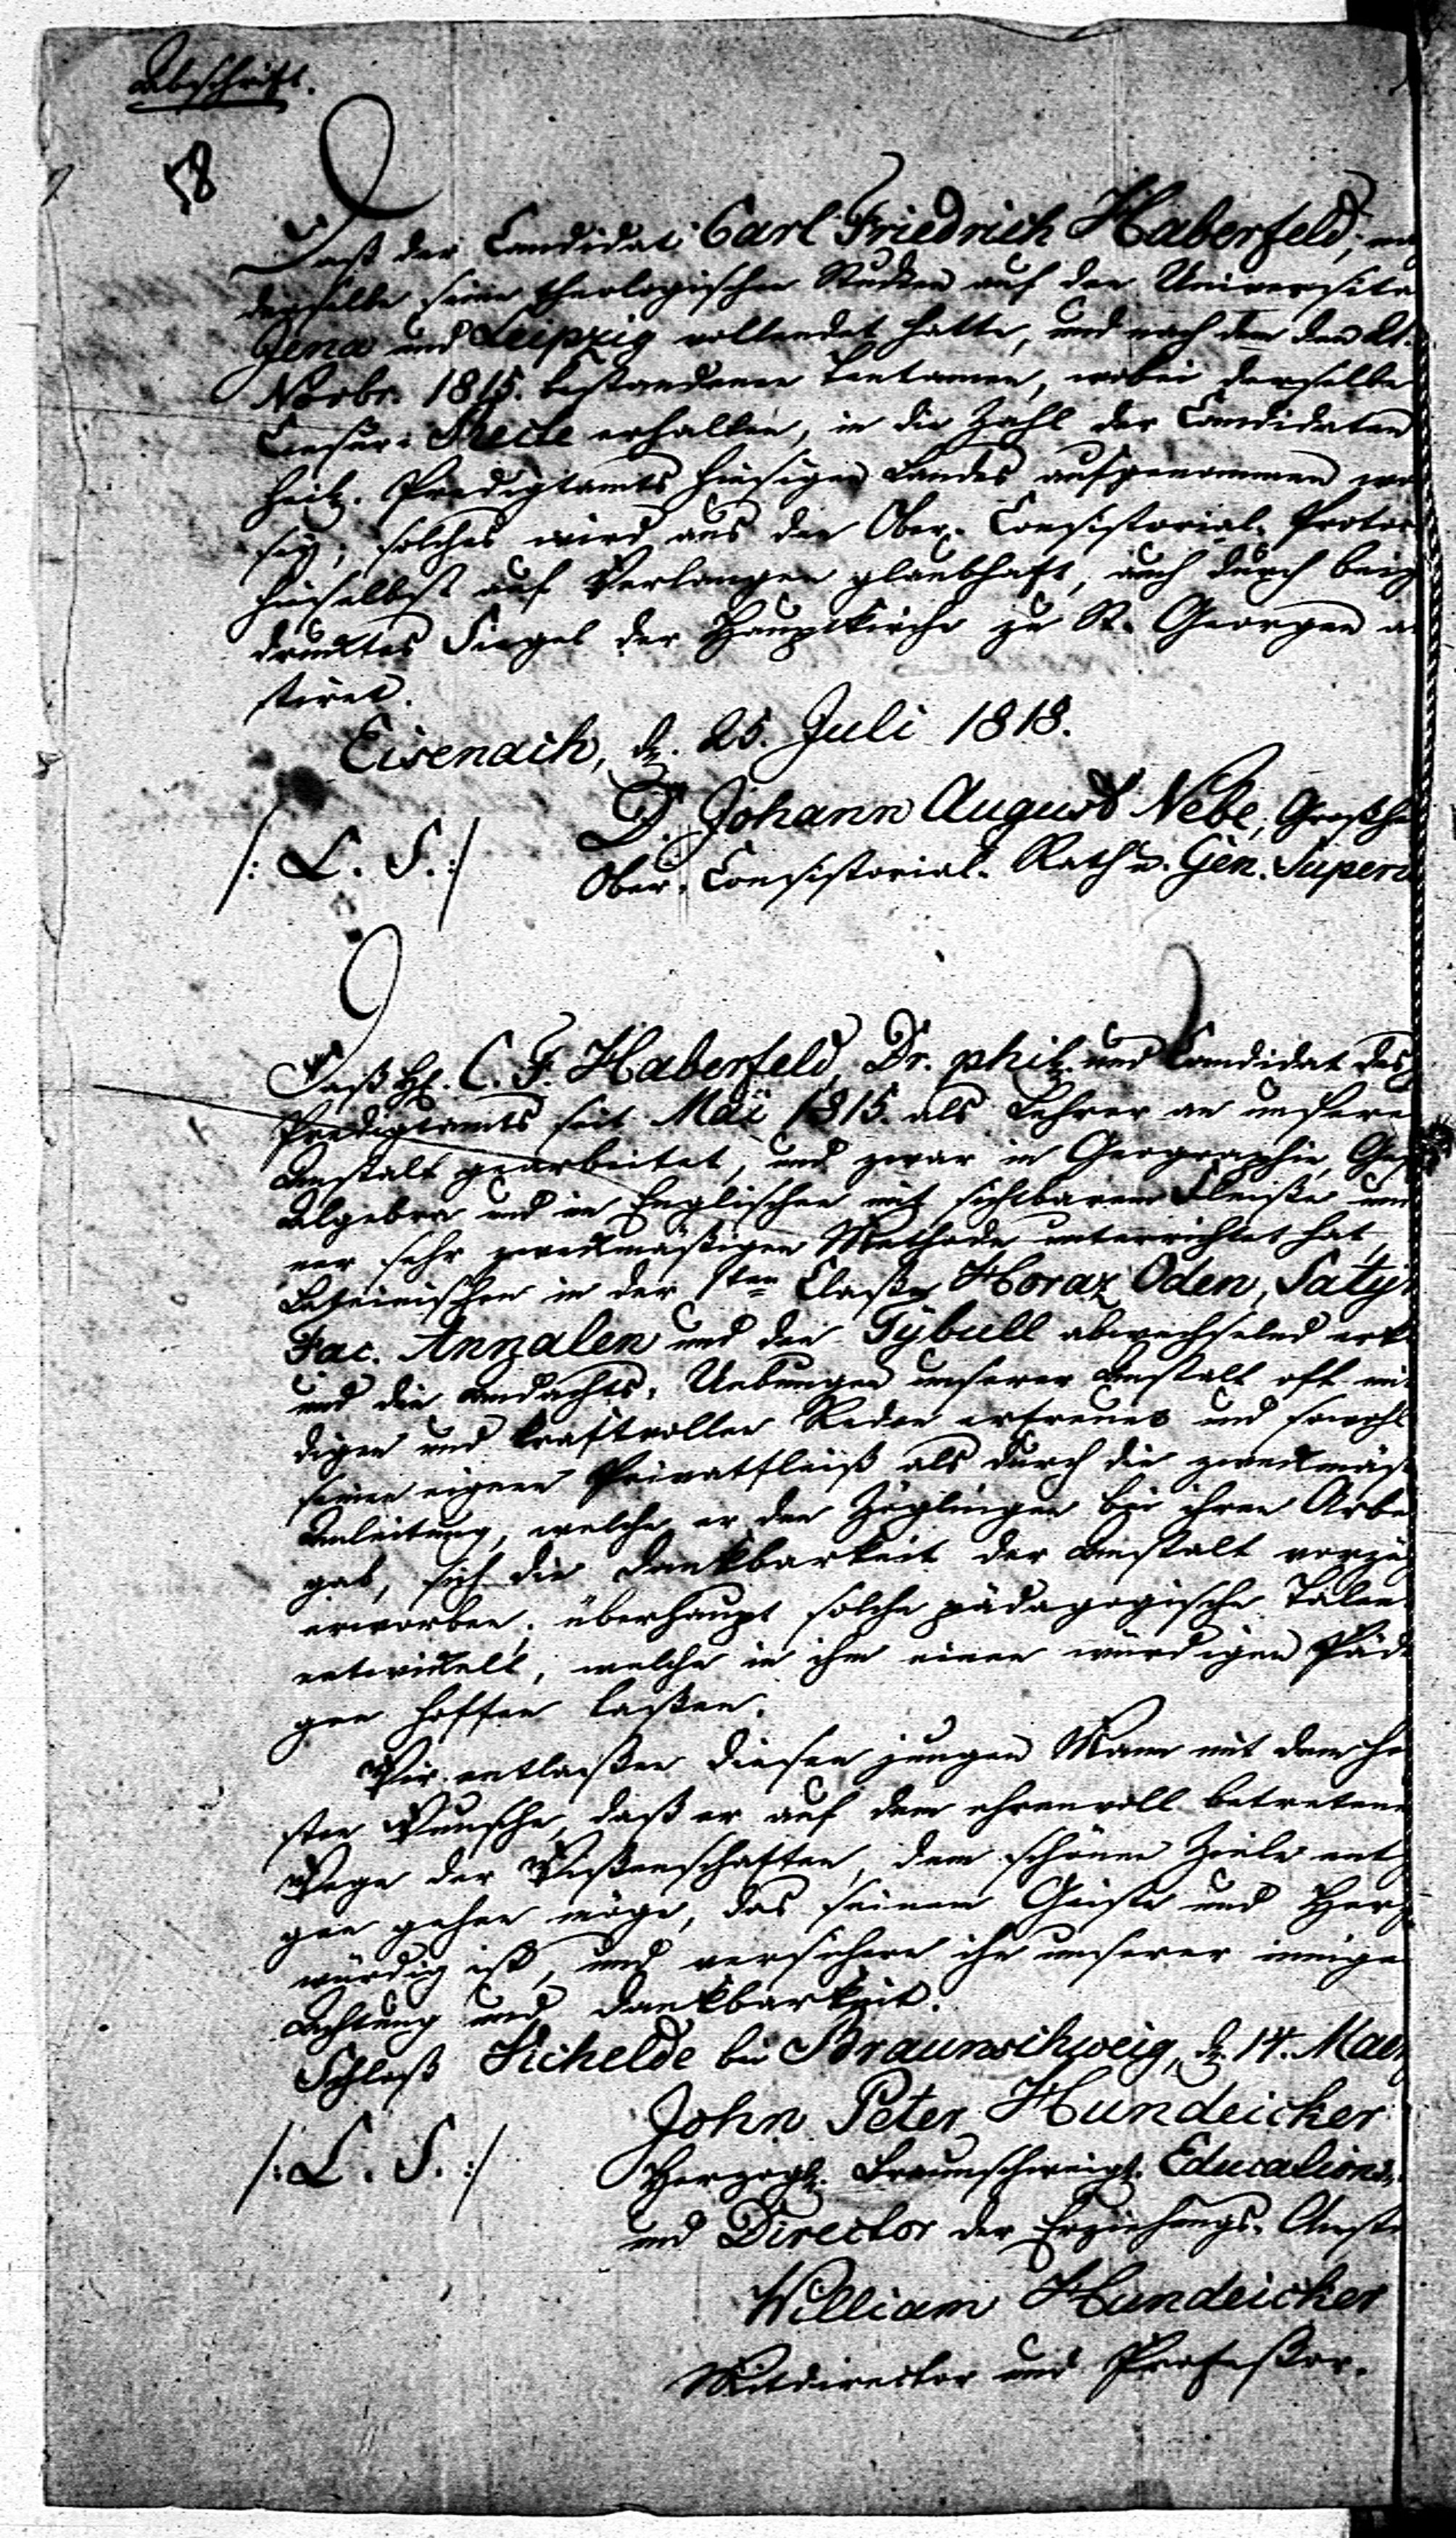 Abschrift.
58
Daß der Candidat Carl Friedrich Haberfeld,
derselbe seine theologischen Studien auf den Universitä
Jena und Leipzig vollendet hatte, und nach dem den 21.
Novbr. 1815. bestandenen Tentamen, wobei derselbe
Censur: Recte erhalten, in die Zahl der Candidaten
heil. Predigtamts hiesigen Landes aufgenommen wo
sey; solches wird aus den Ober-Consistorial-Protoc
hieselbst auf Verlangen glaubhaft, auch durch beig
drucktes Siegel der Hauptkirche zu St. Georgen a
stiret.
Eisenach, d. 25. Juli 1818.
D. Johann August Nebe, Großhe
/: L. S. :/
Ober-Consistorial-Rath u. Gen. Super
Daß H. C. F. Haberfeld, Dr. phil. und Candidat des
Predigtamts seit Mai 1815. als Lehrer an unsere
Anstalt gearbeitet, und zwar in Geographie, Ge
Algebra und im Englischen mit sichtbarem Fleiße und
ner sehr zweckmäßigen Methode unterrichtet hat,
Lateinischen in der 1ten Claße Horaz Oden, Satyr
Tac. Annalen und den Tybull abwechselnd erk
und die Andachts-Uebungen unserer Anstalt oft mi
digen und kraftvollen Reden erfreuet und sowohl
seinen eignen Privatfleiß als durch die zweckmäß
Anleitung, welche er den Zöglingen bei ihren Arbe
gab, sich die Dankbarkeit der Anstalt vorzüg
erworben, überhaupt solche pädagogische Talen
entwickelt, welche in ihm einen würdigen Päd
gen hoffen laßen.
Wir entlaßen diesen jungen Mann mit dem he
sten Wunsche, daß er auf dem ehrenvoll betretene
Wege der Wißenschaften, dem schönen Ziele entg
gen gehen möge, das seinem Geiste und Herz
würdig ist, und versichern ihn unserer innige
Achtung und Dankbarkeit.
Schloß Vichelde bei Braunschweig, d. 14. Mai
John Peter Hundeicker
/: L. S. :/
Herzogl. Braunschweigl. Educations-
und Director der Erziehungs-Anst
William Hundeicker
Mitdirector und Profeßor.